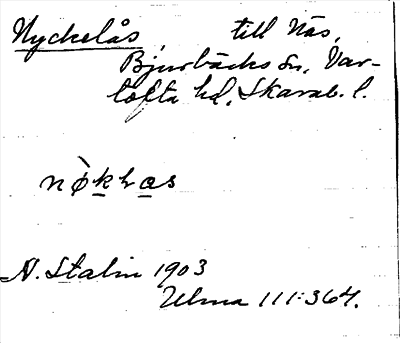 Nyckelås till Näs,
Bjurbäcks sn, Var-
tofta hd, Skarab. l.
A. Stalin 1903
Ulma 111:364.